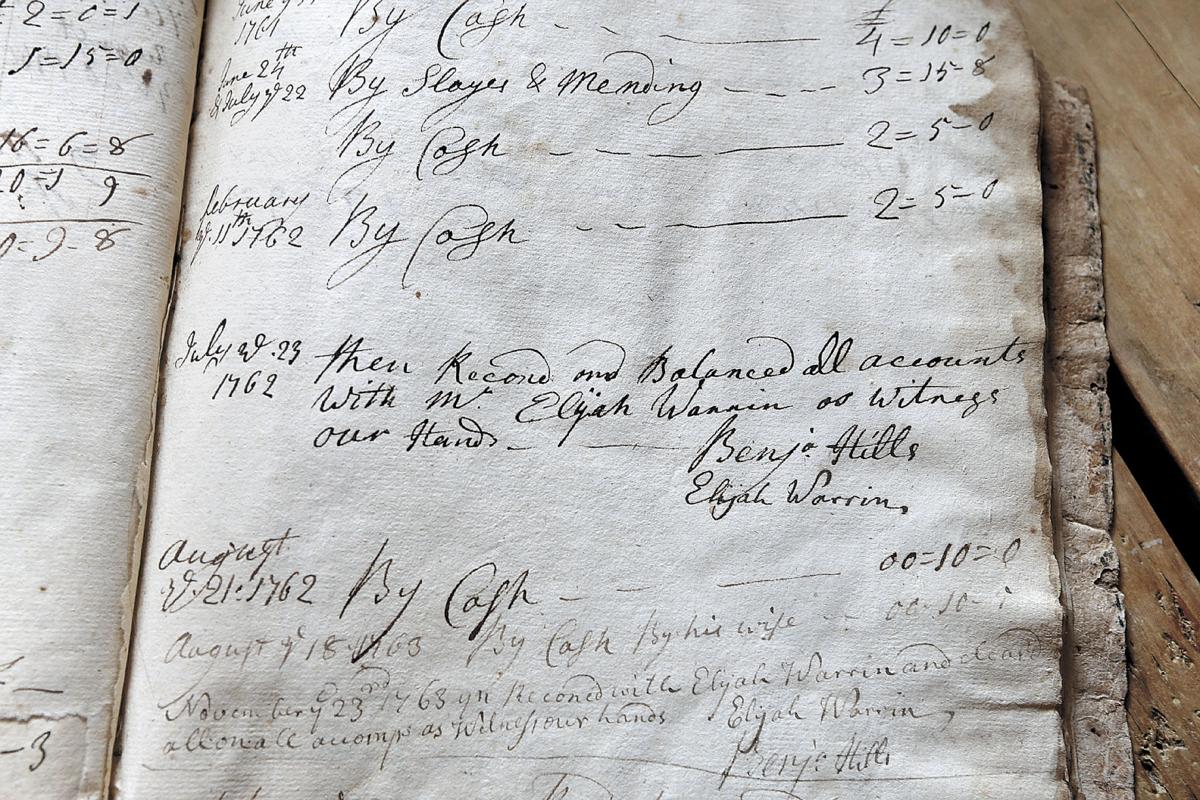 2=0=1
1=15=0
16=6=8
10=1 9
0=9-8
-3
1761 By Cash 4=10=0
June 24th
& July ye 22 By Slayes & Mending 3=15-8
By Cash 2=5-0
february
ye 11th 1762 By Cash 2=5=0
July ye 23 then Recond and Balanced all accounts
1762 with Mr Elijah Warrin as witness
our Hands Benja Hills
Elijah Warrin
August
ye 21: 1762 By Cash 00=10=0
August ye 18 1763 By Cash By his wife 00-10-
November ye 23rd 1763 yn Reconed with Elijah Warrin and
all accomps as Witness our hands Elijah Warrin
Benja Hills